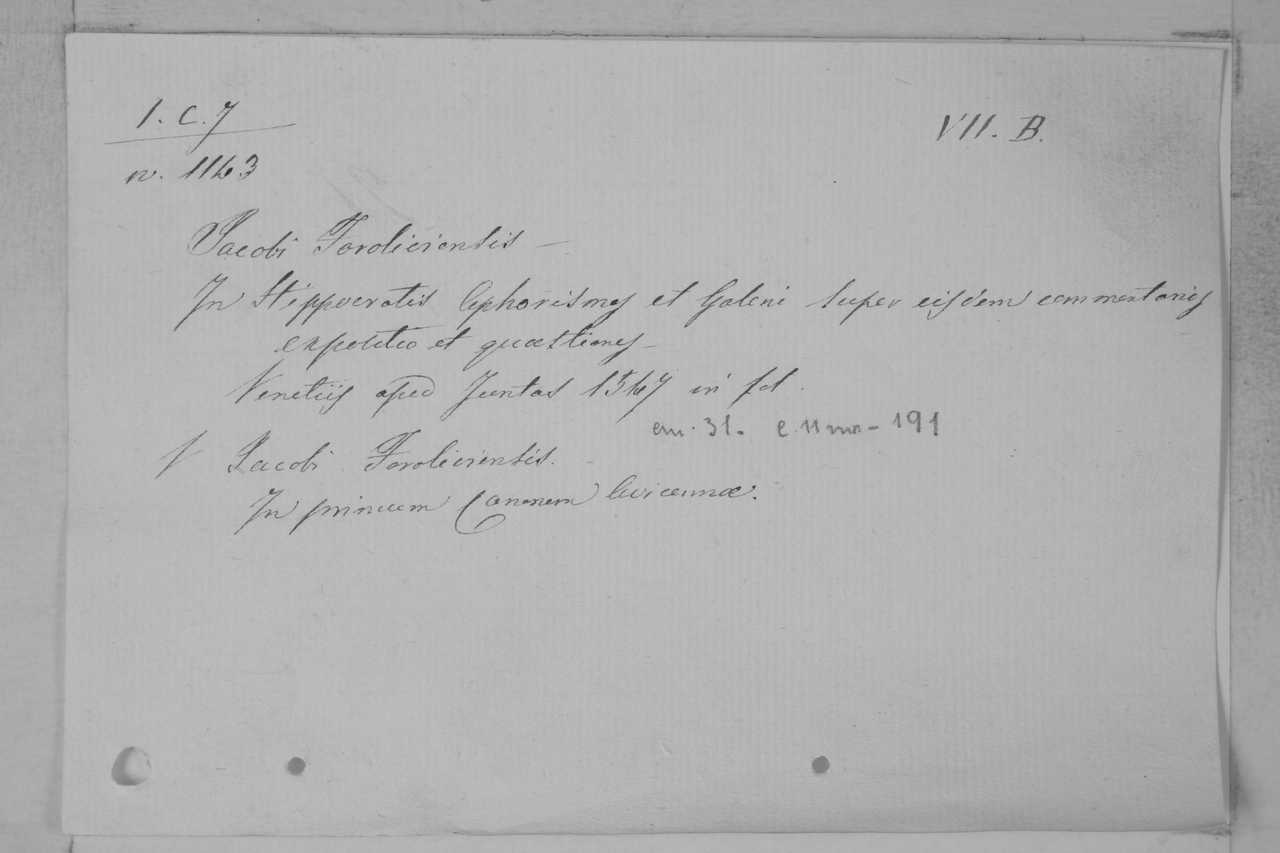 I. C. 7
VII. B.
n. 1143
Jacobi Foroliviensis —
In Hippocratis Aphorismos et Galeni super eisdem commentarios
expositio et quæstiones —
Venetiis apud Juntas 1547 in fol.
em. 31. c. 11 mm - 191
V Jacobi Foroliviensis.
In primum Canonem Avicennæ.